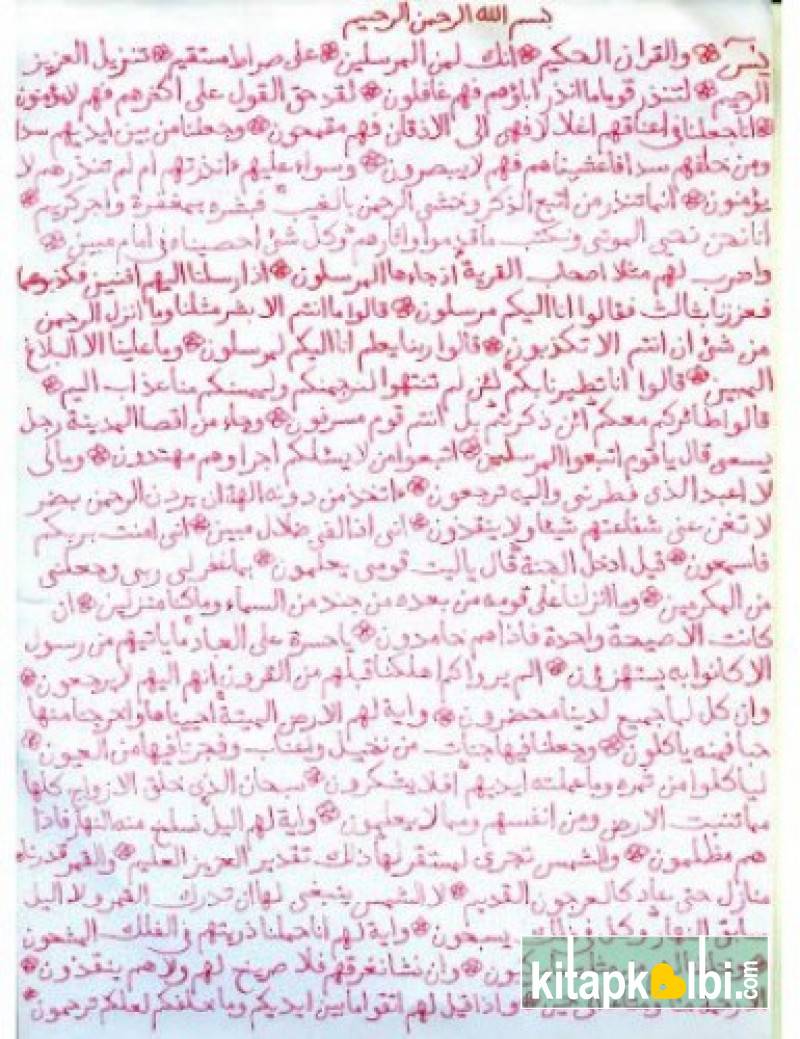 بسم الله الرحمن الرحيم
يس والقران الحكيم انك لمن المرسلين على صراط مستقيم تنزيل العزيز
الرحيم لتنذر قوما ما انذر اباؤهم فهم غافلون لقد حق القول على اكثرهم فهم لا يؤمنون
انا جعلنا فى اعناقهم اغلالا فهى الى الاذقان فهم مقمحون وجعلنا من بين ايديهم سدا
ومن خلفهم سدا فاغشيناهم فهم لا يبصرون وسواء عليهم ءانذرتهم ام لم تنذرهم لا
يؤمنون انما تنذر من اتبع الذكر وخشي الرحمن بالغيب فبشره بمغفرة واجر كريم
انا نحن نحيي الموتى ونكتب ما قدموا واثارهم وكل شئ احصيناه فى امام مبين
واضرب لهم مثلا اصحاب القرية اذ جاءها المرسلون اذ ارسلنا اليهم اثنين فكذبوهما
فعززنا بثالث فقالوا انا اليكم مرسلون قالوا ما انتم الا بشر مثلنا وما انزل الرحمن
من شئ ان انتم الا تكذبون قالوا ربنا يعلم انا اليكم لمرسلون وما علينا الا البلاغ
المبين قالوا انا تطيرنا بكم لئن لم تنتهوا لنرجمنكم وليمسنكم منا عذاب اليم
قالوا طائركم معكم ائن ذكرتم بل انتم قوم مسرفون وجاء من اقصا المدينة رجل
يسعى قال يا قوم اتبعوا المرسلين اتبعوا من لا يسئلكم اجرا وهم مهتدون ومالى
لا اعبد الذى فطرنى واليه ترجعون ءاتخذ من دونه الهة ان يردن الرحمن بضر
لا تغن عنى شفاعتهم شيئا ولا ينقذون انى اذا لفى ضلال مبين انى امنت بربكم
فاسمعون قيل ادخل الجنة قال ياليت قومى يعلمون بما غفرلى ربى وجعلنى
من المكرمين وما انزلنا على قومه من بعده من جند من السماء وما كنا منزلين ان
كانت الا صيحة واحدة فاذا هم خامدون يا حسرة على العباد ما ياتيهم من رسول
الا كانوا به يستهزؤن الم يروا كم اهلكنا قبلهم من القرون انهم اليهم لا يرجعون
وان كل لما جميع لدينا محضرون واية لهم الارض الميتة احييناها واخرجنا منها
حبا فمنه ياكلون وجعلنا فيها جنات من نخيل واعناب وفجرنا فيها من العيون
لياكلوا من ثمره وما عملته ايديهم افلا يشكرون سبحان الذى خلق الازواج كلها
مما تنبت الارض ومن انفسهم ومما لا يعلمون واية لهم اليل نسلخ منه النهار فاذا
هم مظلمون والشمس تجرى لمستقر لها ذلك تقدير العزيز العليم والقمر قدرناه
منازل حتى عاد كالعرجون القديم لا الشمس ينبغى لها ان تدرك القمر ولا اليل
سابق النهار وكل فى فلك يسبحون واية لهم انا حملنا ذريتهم فى الفلك المشحون
وان نشا نغرقهم فلا صريخ لهم ولا هم ينقذون
واذا قيل لهم اتقوا ما بين ايديكم وما خلفكم لعلكم ترحمون
kitapkalbi.com